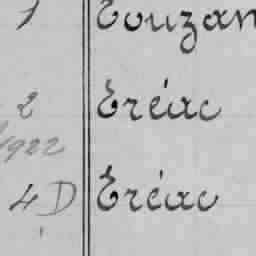 1 Touzan
2 Tréac
1922
4 D Tréac